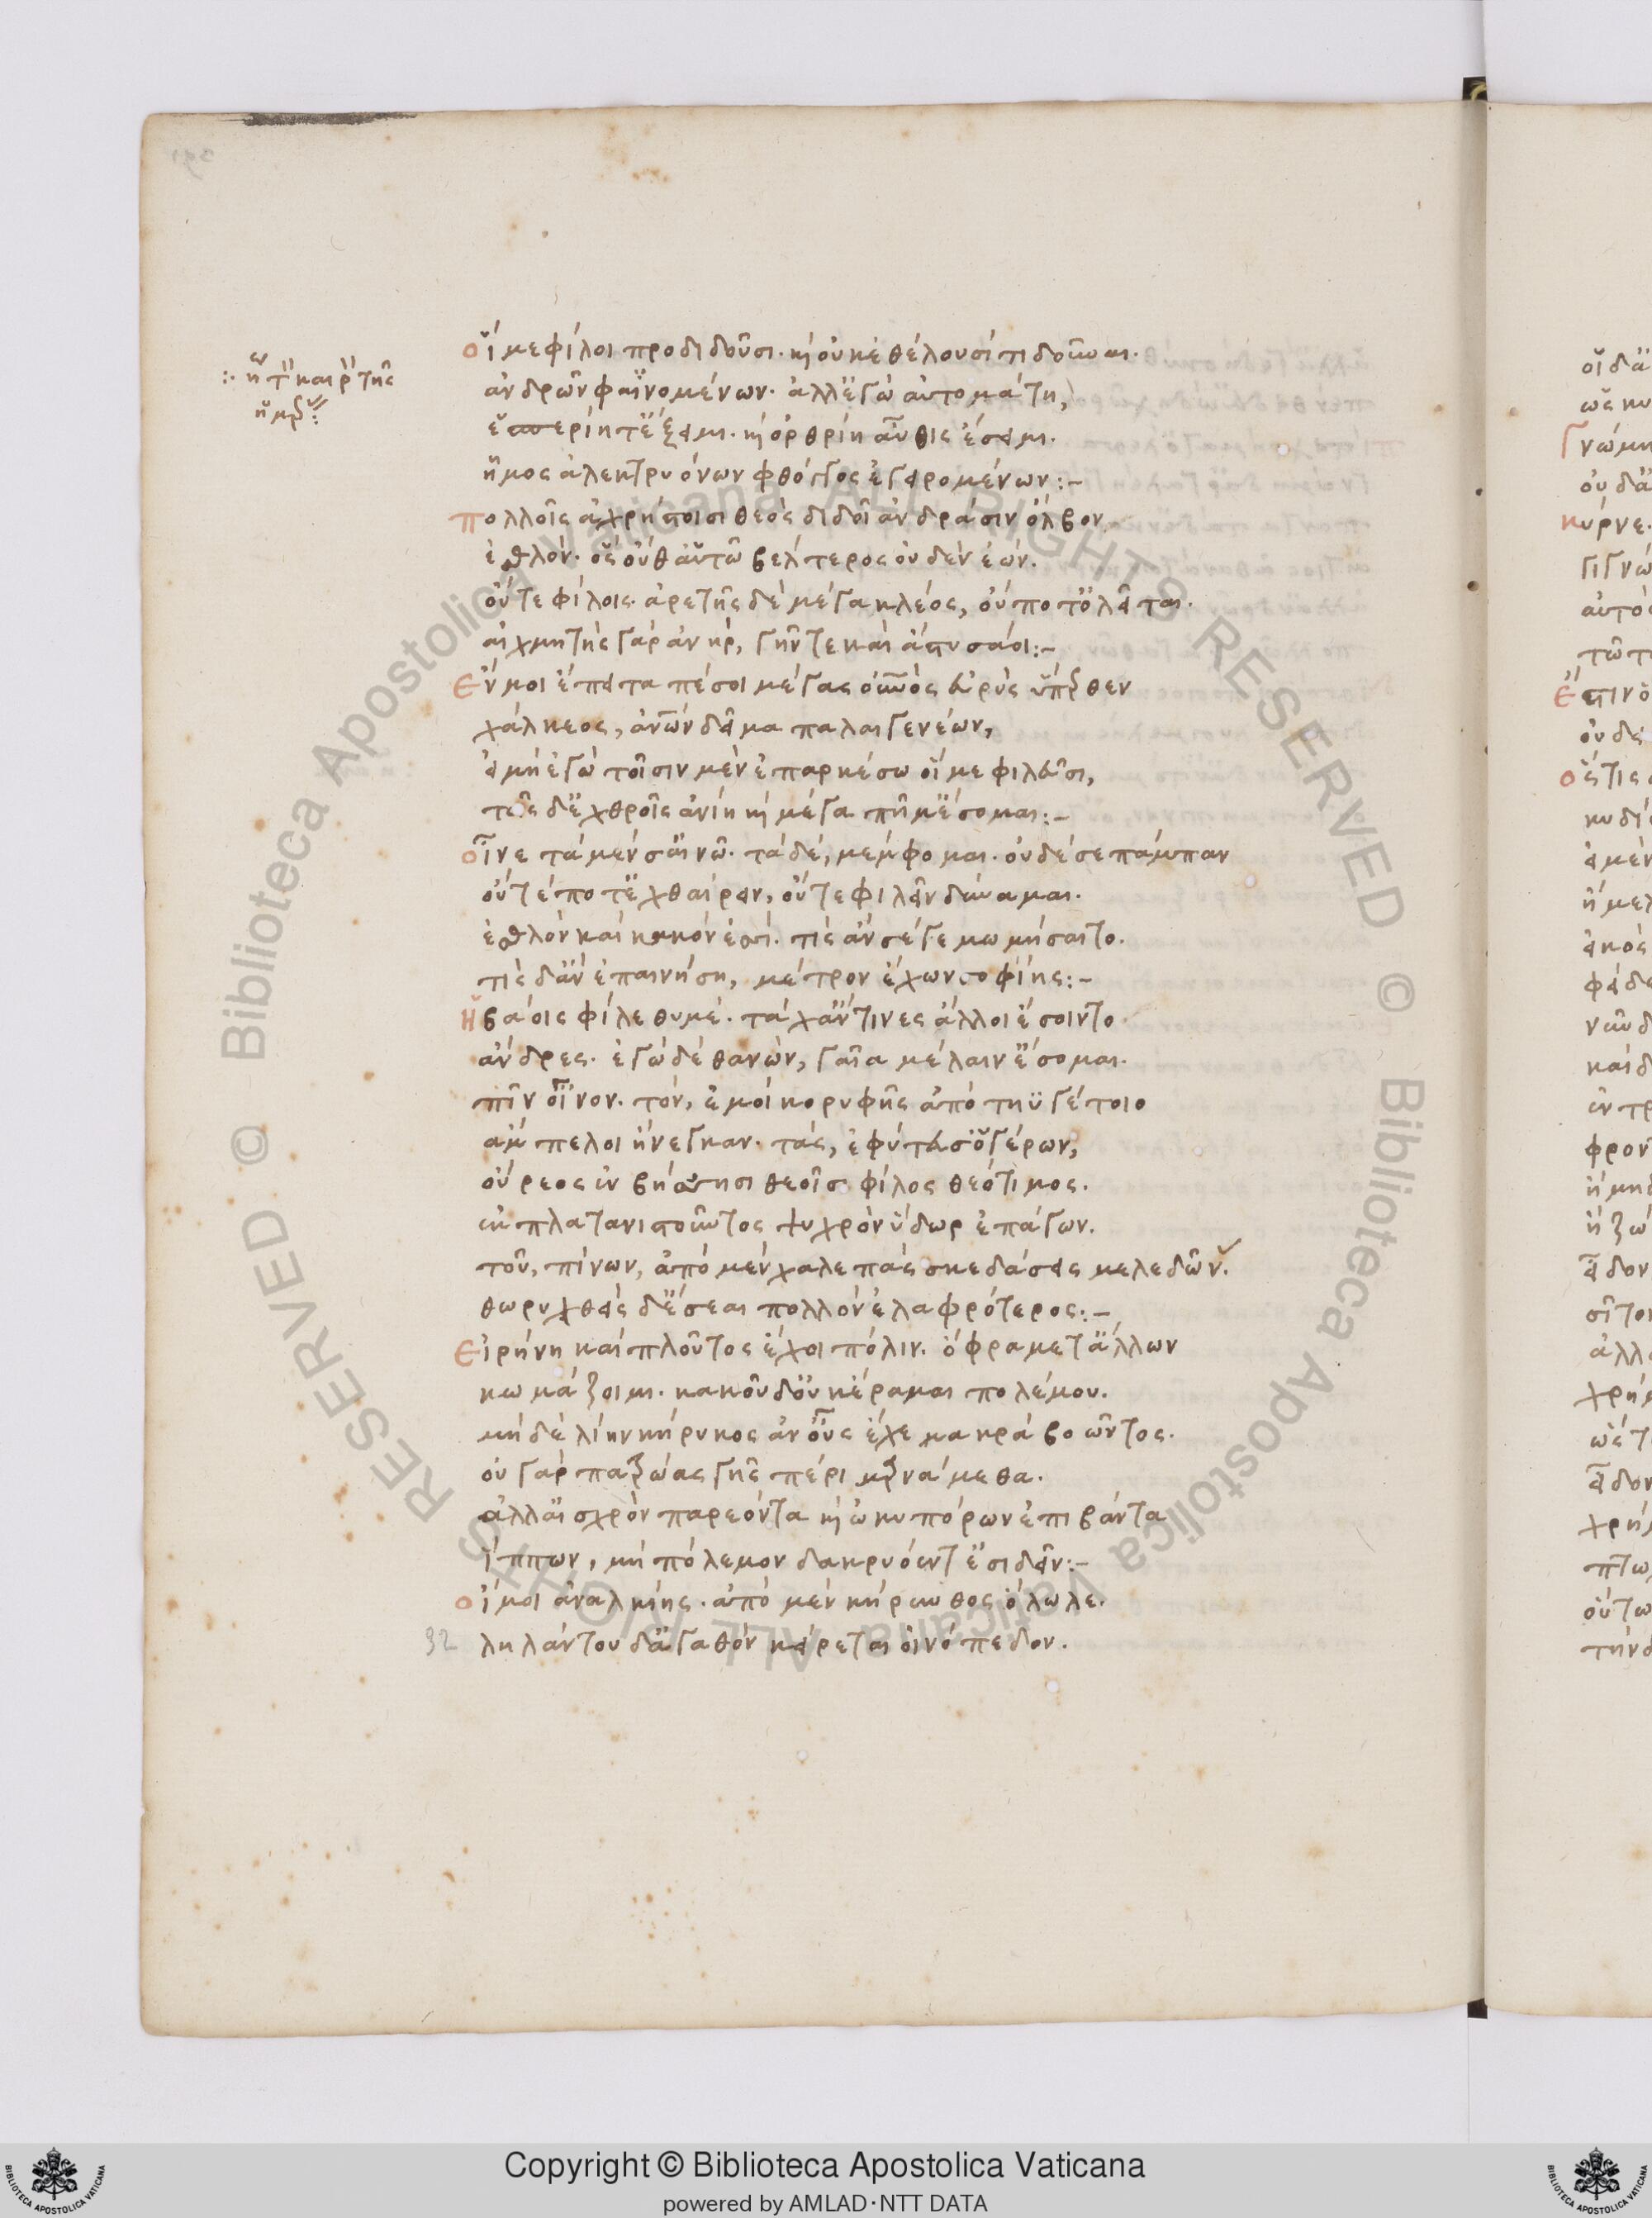 οἵ με φίλοι προδιδοῦσι. καὶ οὐκ ἐθέλουσί τι δοῦναι.
ἀνδρῶν φαινομένων. ἀλλ' ἐγὼ αὐτομάτη,
ἑσπερίη τ' ἔξειμι. καὶ ὀρθρίη αὖθις ἔσειμι.
ἦμος ἀλεκτρυόνων φθόγγος ἐγειρομένων:-
πολλοῖς ἀχρήστοισι θεὸς διδοῖ ἀνδράσιν ὄλβον
ἐσθλόν. ὃς οὔθ' αὑτῶ βέλτερος οὐδὲν ἐών.
οὔτε φίλοις. ἀρετῆς δὲ μέγα κλέος, οὔποτ' ὀλεῖται.
αἰχμητὴς γὰρ ἀνήρ, γῆν τε καὶ ἄστυ σαοῖ:-
ἔν μοι ἔπειτα πέσοι μέγας οὐνὸς εὐρὺς ὕπερθεν
χάλκεος, ἀνων δεῖμα παλαιγενέων,
εἰ μὴ ἐγὼ τοῖσιν μὲν ἐπαρκέσω οἵ με φιλεῦσι,
τοῖς δ' ἐχθροῖς ἀνίη καὶ μέγα πῆμ' ἔσομαι:-
οἶνε τὰ μέν σ' αἰνῶ. τὰ δὲ, μέμφομαι. οὐδέ σε πάμπαν
οὔτέ ποτ' ἐχθαίρειν, οὔτε φιλεῖν δύναμαι.
ἐσθλὸν καὶ κακόν ἐσσι. τίς ἄν σέ γε μωμήσαιτο.
τὶς δ' ἂν ἐπαινήση, μέτρον ἔχων σοφίης:-
ἡβάοις φίλε θυμέ. τάχ' ἄν τινες ἄλλοι ἔσοιντο
ἄνδρες. ἐγὼ δὲ θανὼν, γαῖα μέλαιν' ἔσομαι.
πῖν' οἶνον. τὸν, ἐμοὶ κορυφῆς ἀπὸ τηϋγέτοιο
ἄμπελοι ἤνεγκαν. τὰς, ἐφύτευσ' ὁ γέρων,
οὔρεος ἐν βήσσησι θεοῖσι φίλος θεότιμος.
ἐκ πλατανιστοῦντος ψυχρὸν ὕδωρ ἐπάγων.
τοῦ, πίνων, ἀπὸ μὲν χαλεπὰς σκεδάσεις μελεδῶν.
θωρυχθεὶς δ' ἔσεαι πολλὸν ἐλαφρότερος:-
εἰρήνη καὶ πλοῦτος ἔχοι πόλιν. ὄφρα μετ' ἄλλων
κωμάζοιμι. κακοῦ δ' οὐκ ἔραμαι πολέμου.
μηδὲ λίην κήρυκος ἀν' οὖς ἔχε μακρὰ βοῶντος.
οὐ γὰρ πατρώας γῆς πέρι μαρνάμεθα.
ἀλλ' αἰσχρὸν παρεόντα καὶ ὠκυπόρων ἐπιβάντα
ἵππων, μὴ πόλεμον δακρυόεντ' ἐσιδεῖν:-
οἴμοι ἀναλκίης. ἀπὸ μὲν κήρινθος ὄλωλε.
ληλάντου δ' ἀγαθὸν κείρεται οἰνόπεδον.
32
Copyright © Biblioteca Apostolica Vaticana
powered by AMLAD·NTT DATA